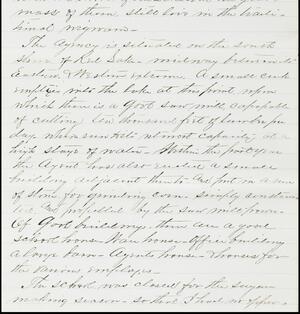 mass of them still live in the tradi-
tional wigwams.
The agency is situated on the south
shore of Red Lake midway between its
Eastern & Western extreme. A small creek
empties into the lake at this point upon
which there is a good saw mill capable
of cutting ten thousand feet of lumber per
day when run to its utmost capacity at a
high stage of water. Within the past year
the Agent has also erected a small
building adjacent thereto and put in a run
of stone for grinding corn
propelled by the saw mill power.
Of good buildings there are a good
school house Ware house Office building
a large barn Agents house & houses for
the various employes.
The school was closed for the sugar
making season so that I had no oppor-